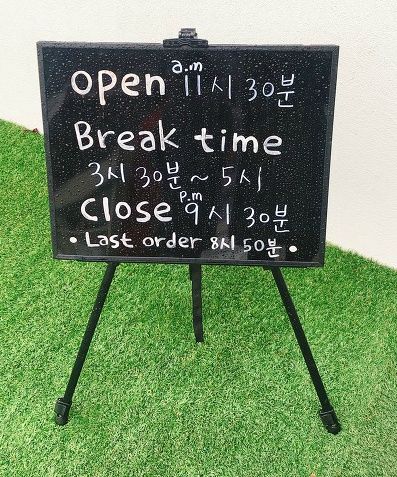 open a.m 11시 30분
Break time
3시 30분 ~ 5시
close p.m 9시 30분
• Last order 8시 50분 •